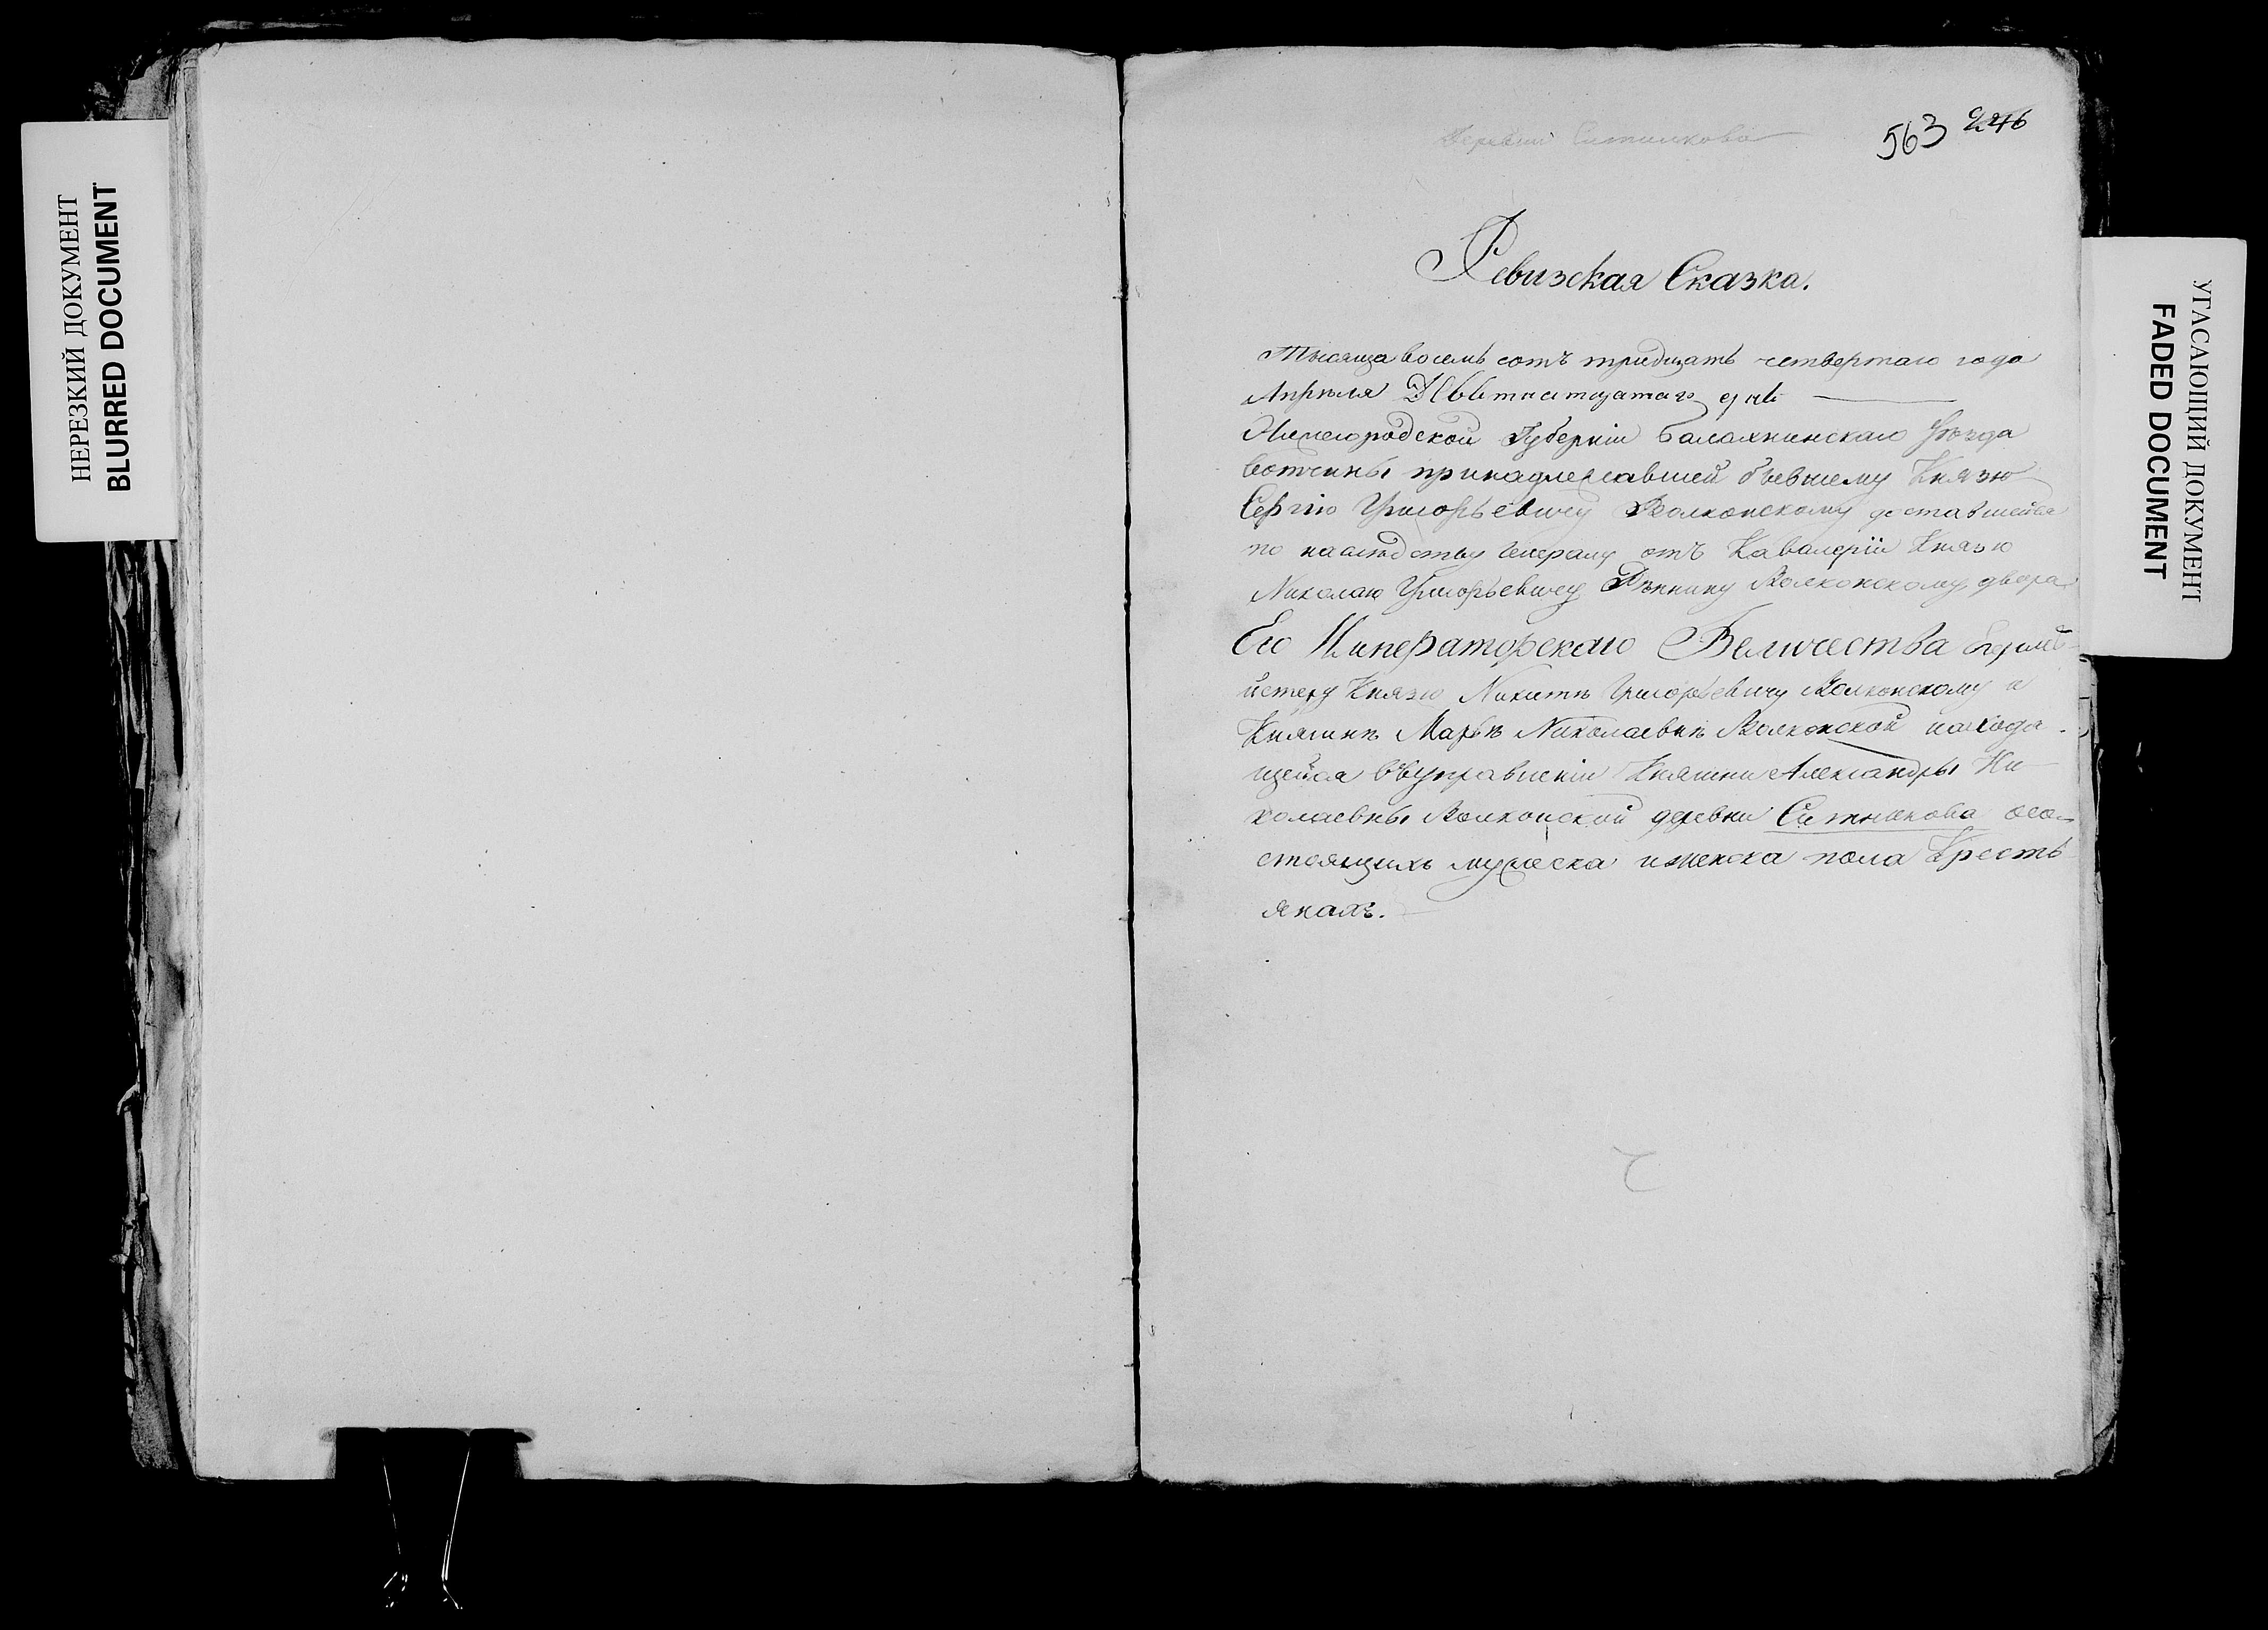 НЕРЕЗКИЙ ДОКУМЕНТ
BLURRED DOCUMENT
Деревни Ситникова
563 276
Ревизская Сказка.
Тысяща восемь сотъ тридцать четвертаго года
Апрѣля Деветнатцатаго дня
Нижегородской Губерніи Балахнинскаго Уѣзда
вотчины принадлежавшей бывшему Князю
Сергію Григорьевичу Волконскому доставшейся
по наслѣдству Генералу отъ Кавалеріи Князю
Николаю Григорьевичу Рѣпнину Волконскому двора
Его Императорскаго Величества
Князю Никитѣ Григорьевичу Волконскому и
Княгинѣ Марьѣ Николаевнѣ Волконской находя-
щейся въ управленіи Княгини Александры Ни-
колаевны Волконской деревни Ситникова осо-
стоящихъ мужеска и женска пола Кресть
янахъ.
УГАСАЮЩИЙ ДОКУМЕНТ
FADED DOCUMENT